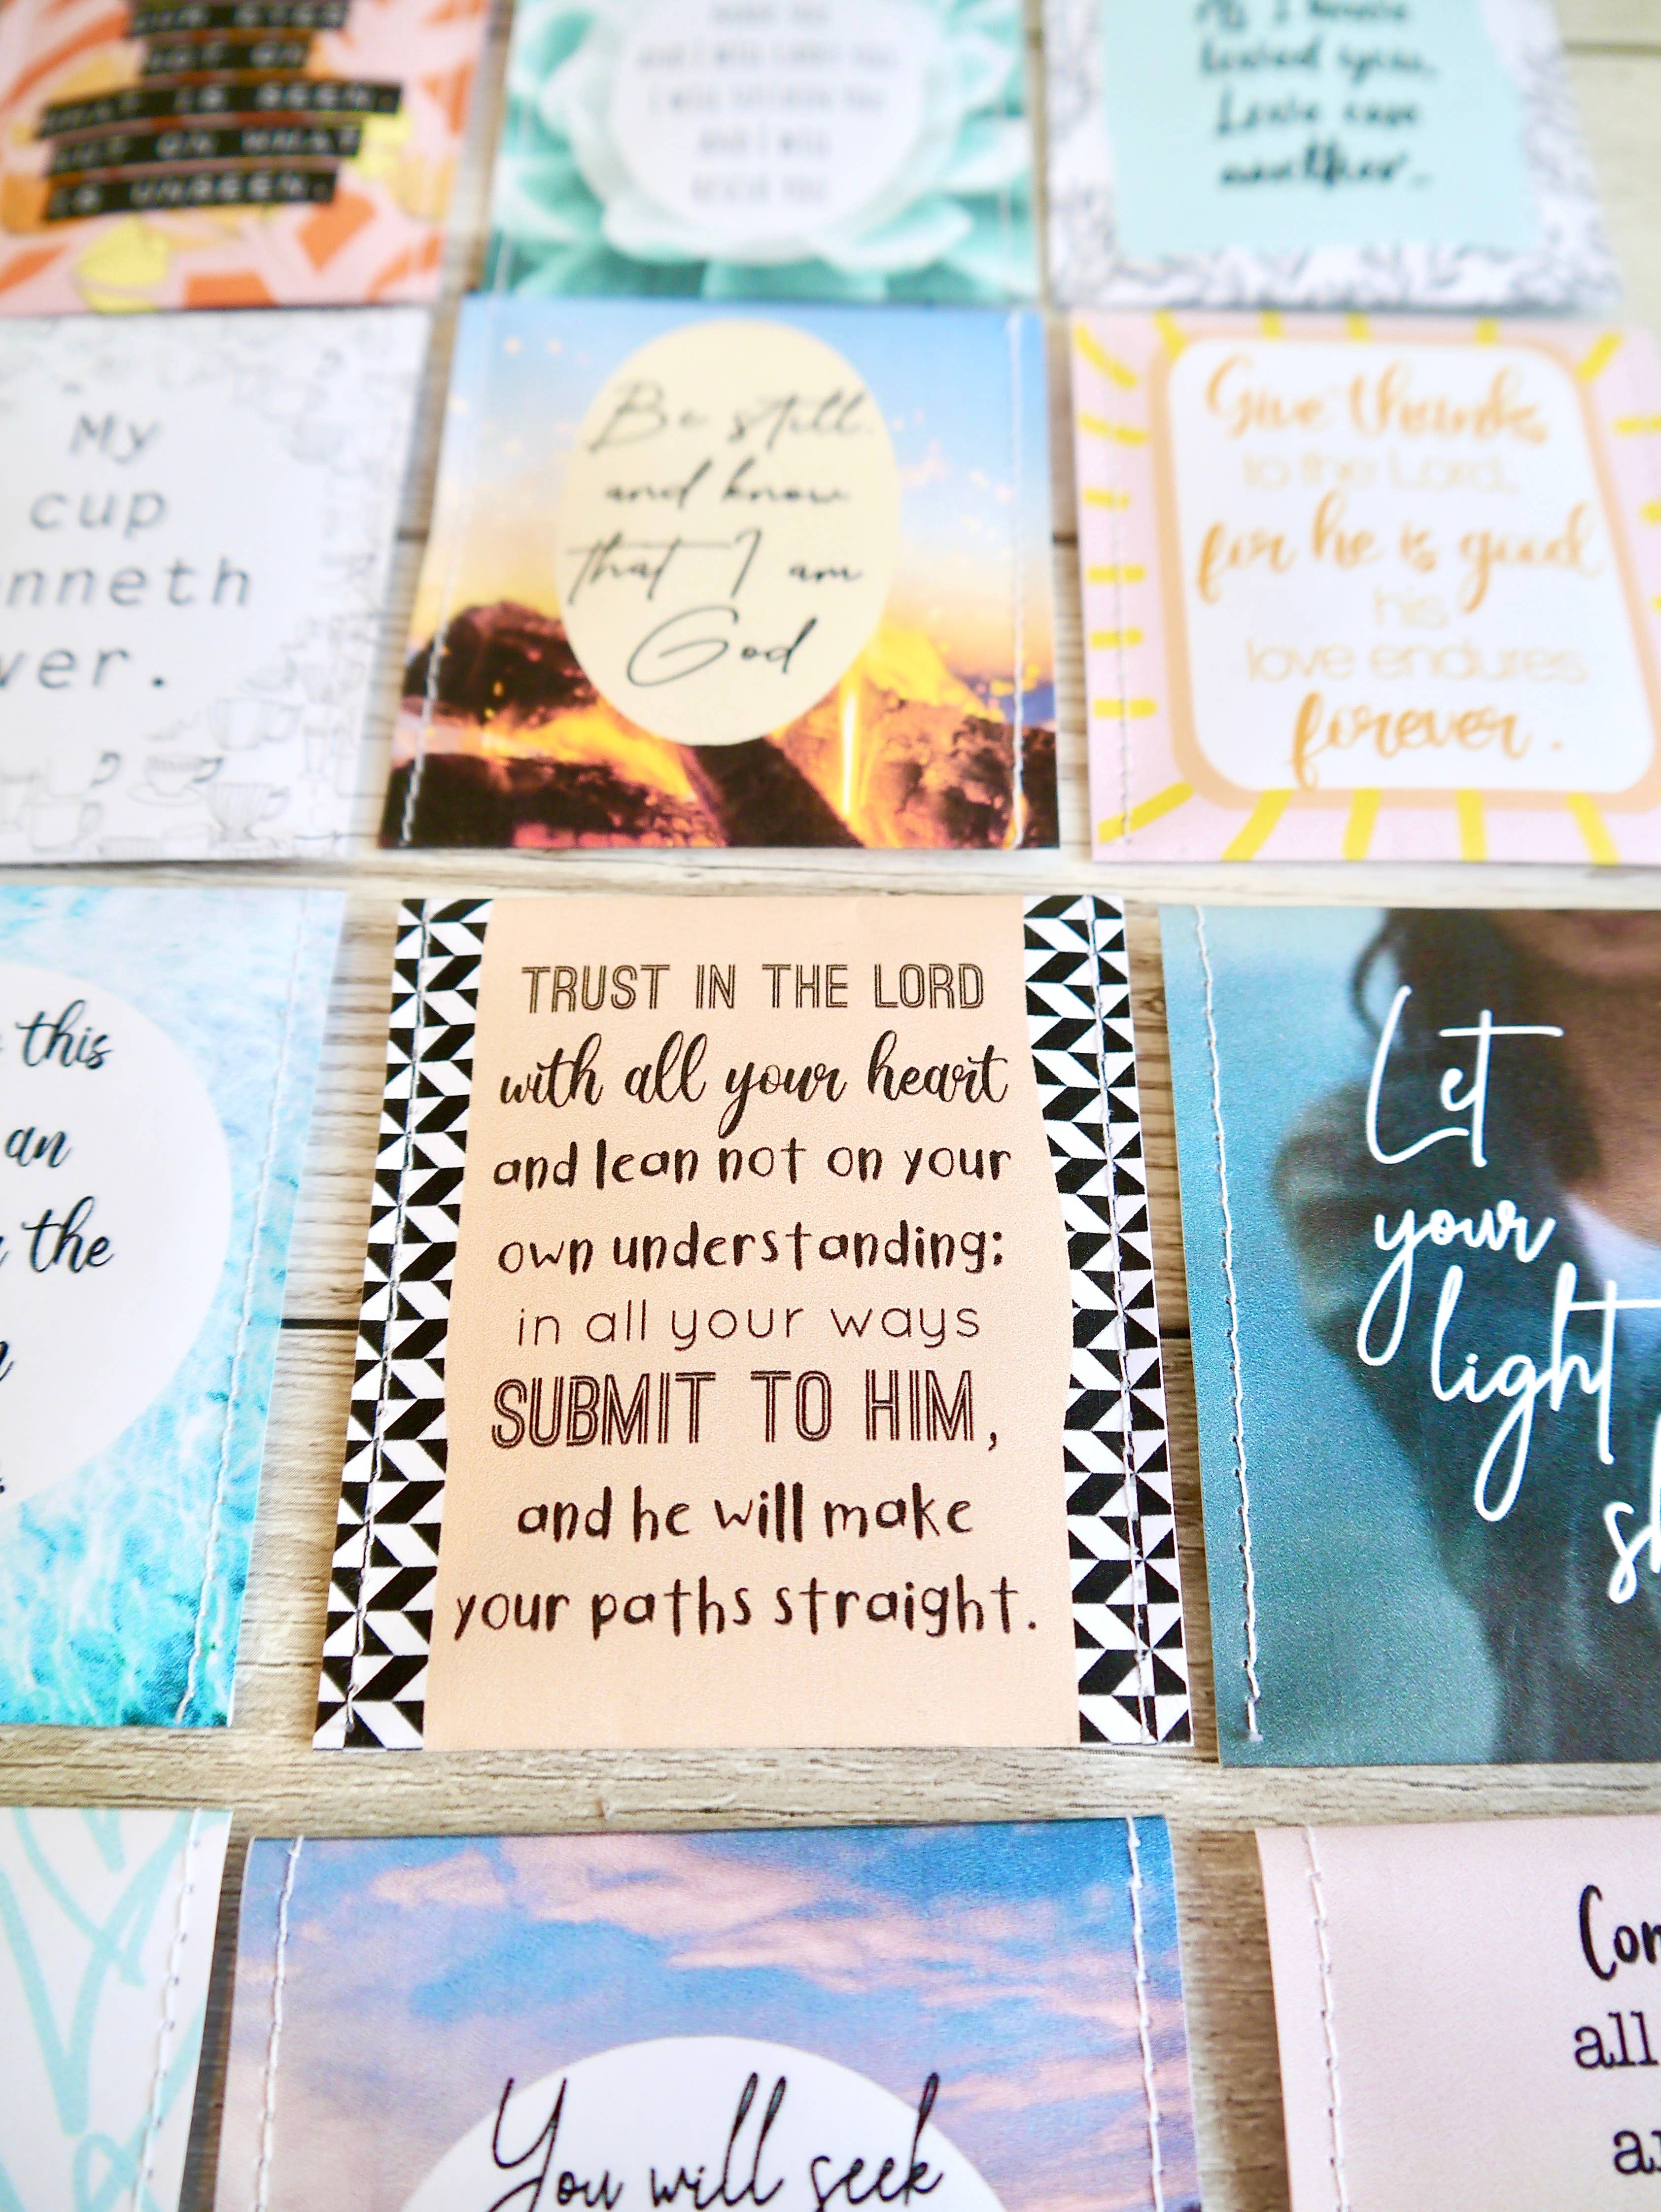 NOT ON
WHAT IS SEEN,
BUT ON WHAT
IS UNSEEN.
AND I WILL
loved you,
Love one
another.
My
cup
nneth
ver.
Be still,
and know
that I am
God
Give thanks
to the Lord,
for he is good
his
love endures
forever.
this
an
the
TRUST IN THE LORD
with all your heart
and lean not on your
own understanding;
in all your ways
SUBMIT TO HIM,
and he will make
your paths straight.
Let
your
light
sh
You will seek
Com
all